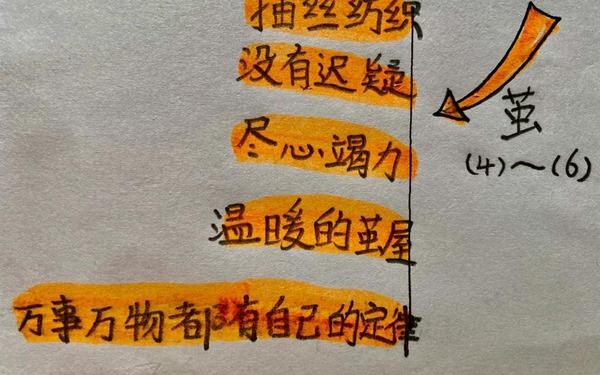 抽丝纺织
没有迟疑
尽心竭力
温暖的茧屋
万事万物都有自己的定律
茧
(4)～(6)